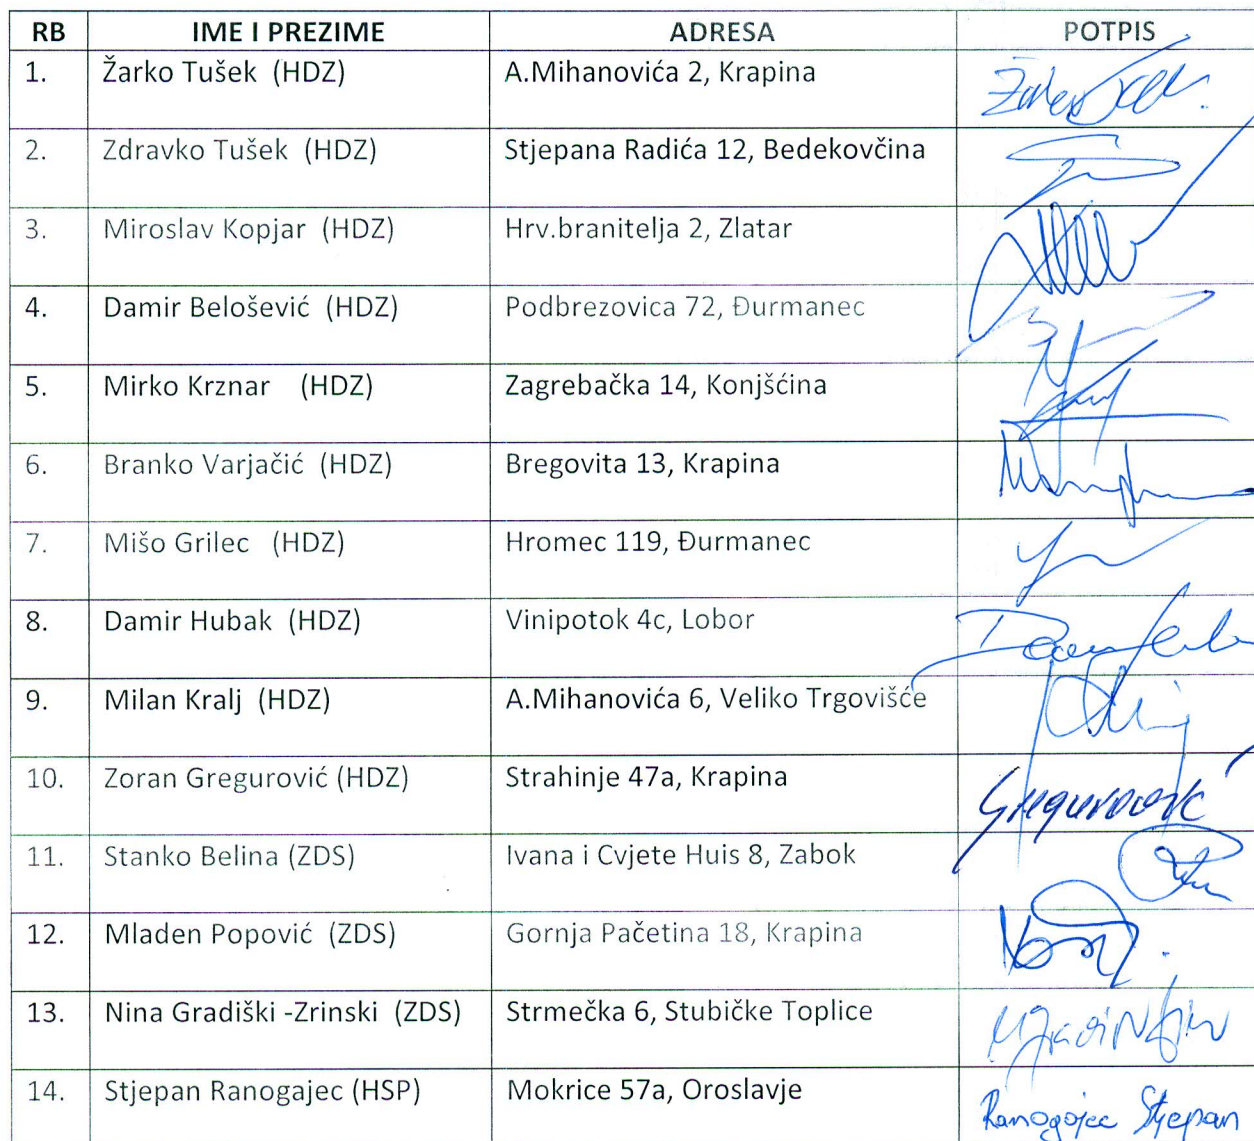 RB IME I PREZIME ADRESA POTPIS
1. Žarko Tušek (HDZ) A.Mihanovića 2, Krapina
2. Zdravko Tušek (HDZ) Stjepana Radića 12, Bedekovčina
3. Miroslav Kopjar (HDZ) Hrv.branitelja 2, Zlatar
4. Damir Belošević (HDZ) Podbrezovica 72, Đurmanec
5. Mirko Krznar (HDZ) Zagrebačka 14, Konjšćina
6. Branko Varjačić (HDZ) Bregovita 13, Krapina
7. Mišo Grilec (HDZ) Hromec 119, Đurmanec
8. Damir Hubak (HDZ) Vinipotok 4c, Lobor
9. Milan Kralj (HDZ) A.Mihanovića 6, Veliko Trgovišće
10. Zoran Gregurović (HDZ) Strahinje 47a, Krapina Gregurović
11. Stanko Belina (ZDS) Ivana i Cvjete Huis 8, Zabok
12. Mladen Popović (ZDS) Gornja Pačetina 18, Krapina
13. Nina Gradiški -Zrinski (ZDS) Strmečka 6, Stubičke Toplice
14. Stjepan Ranogajec (HSP) Mokrice 57a, Oroslavje Ranogajec Stjepan